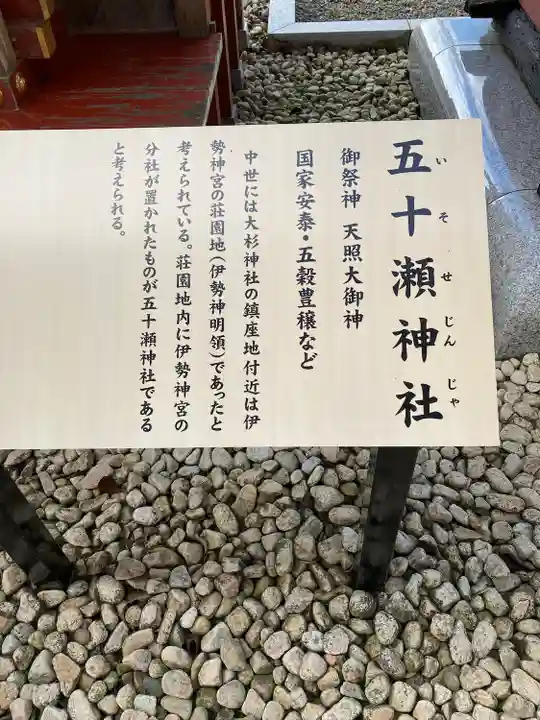 五十瀬神社
いそせじんじゃ
御祭神 天照大御神
国家安泰・五穀豊穣など
中世には大杉神社の鎮座地付近は伊
勢神宮の荘園地(伊勢神明領)であったと
考えられている。荘園地内に伊勢神宮の
分社が置かれたものが五十瀬神社である
と考えられる。